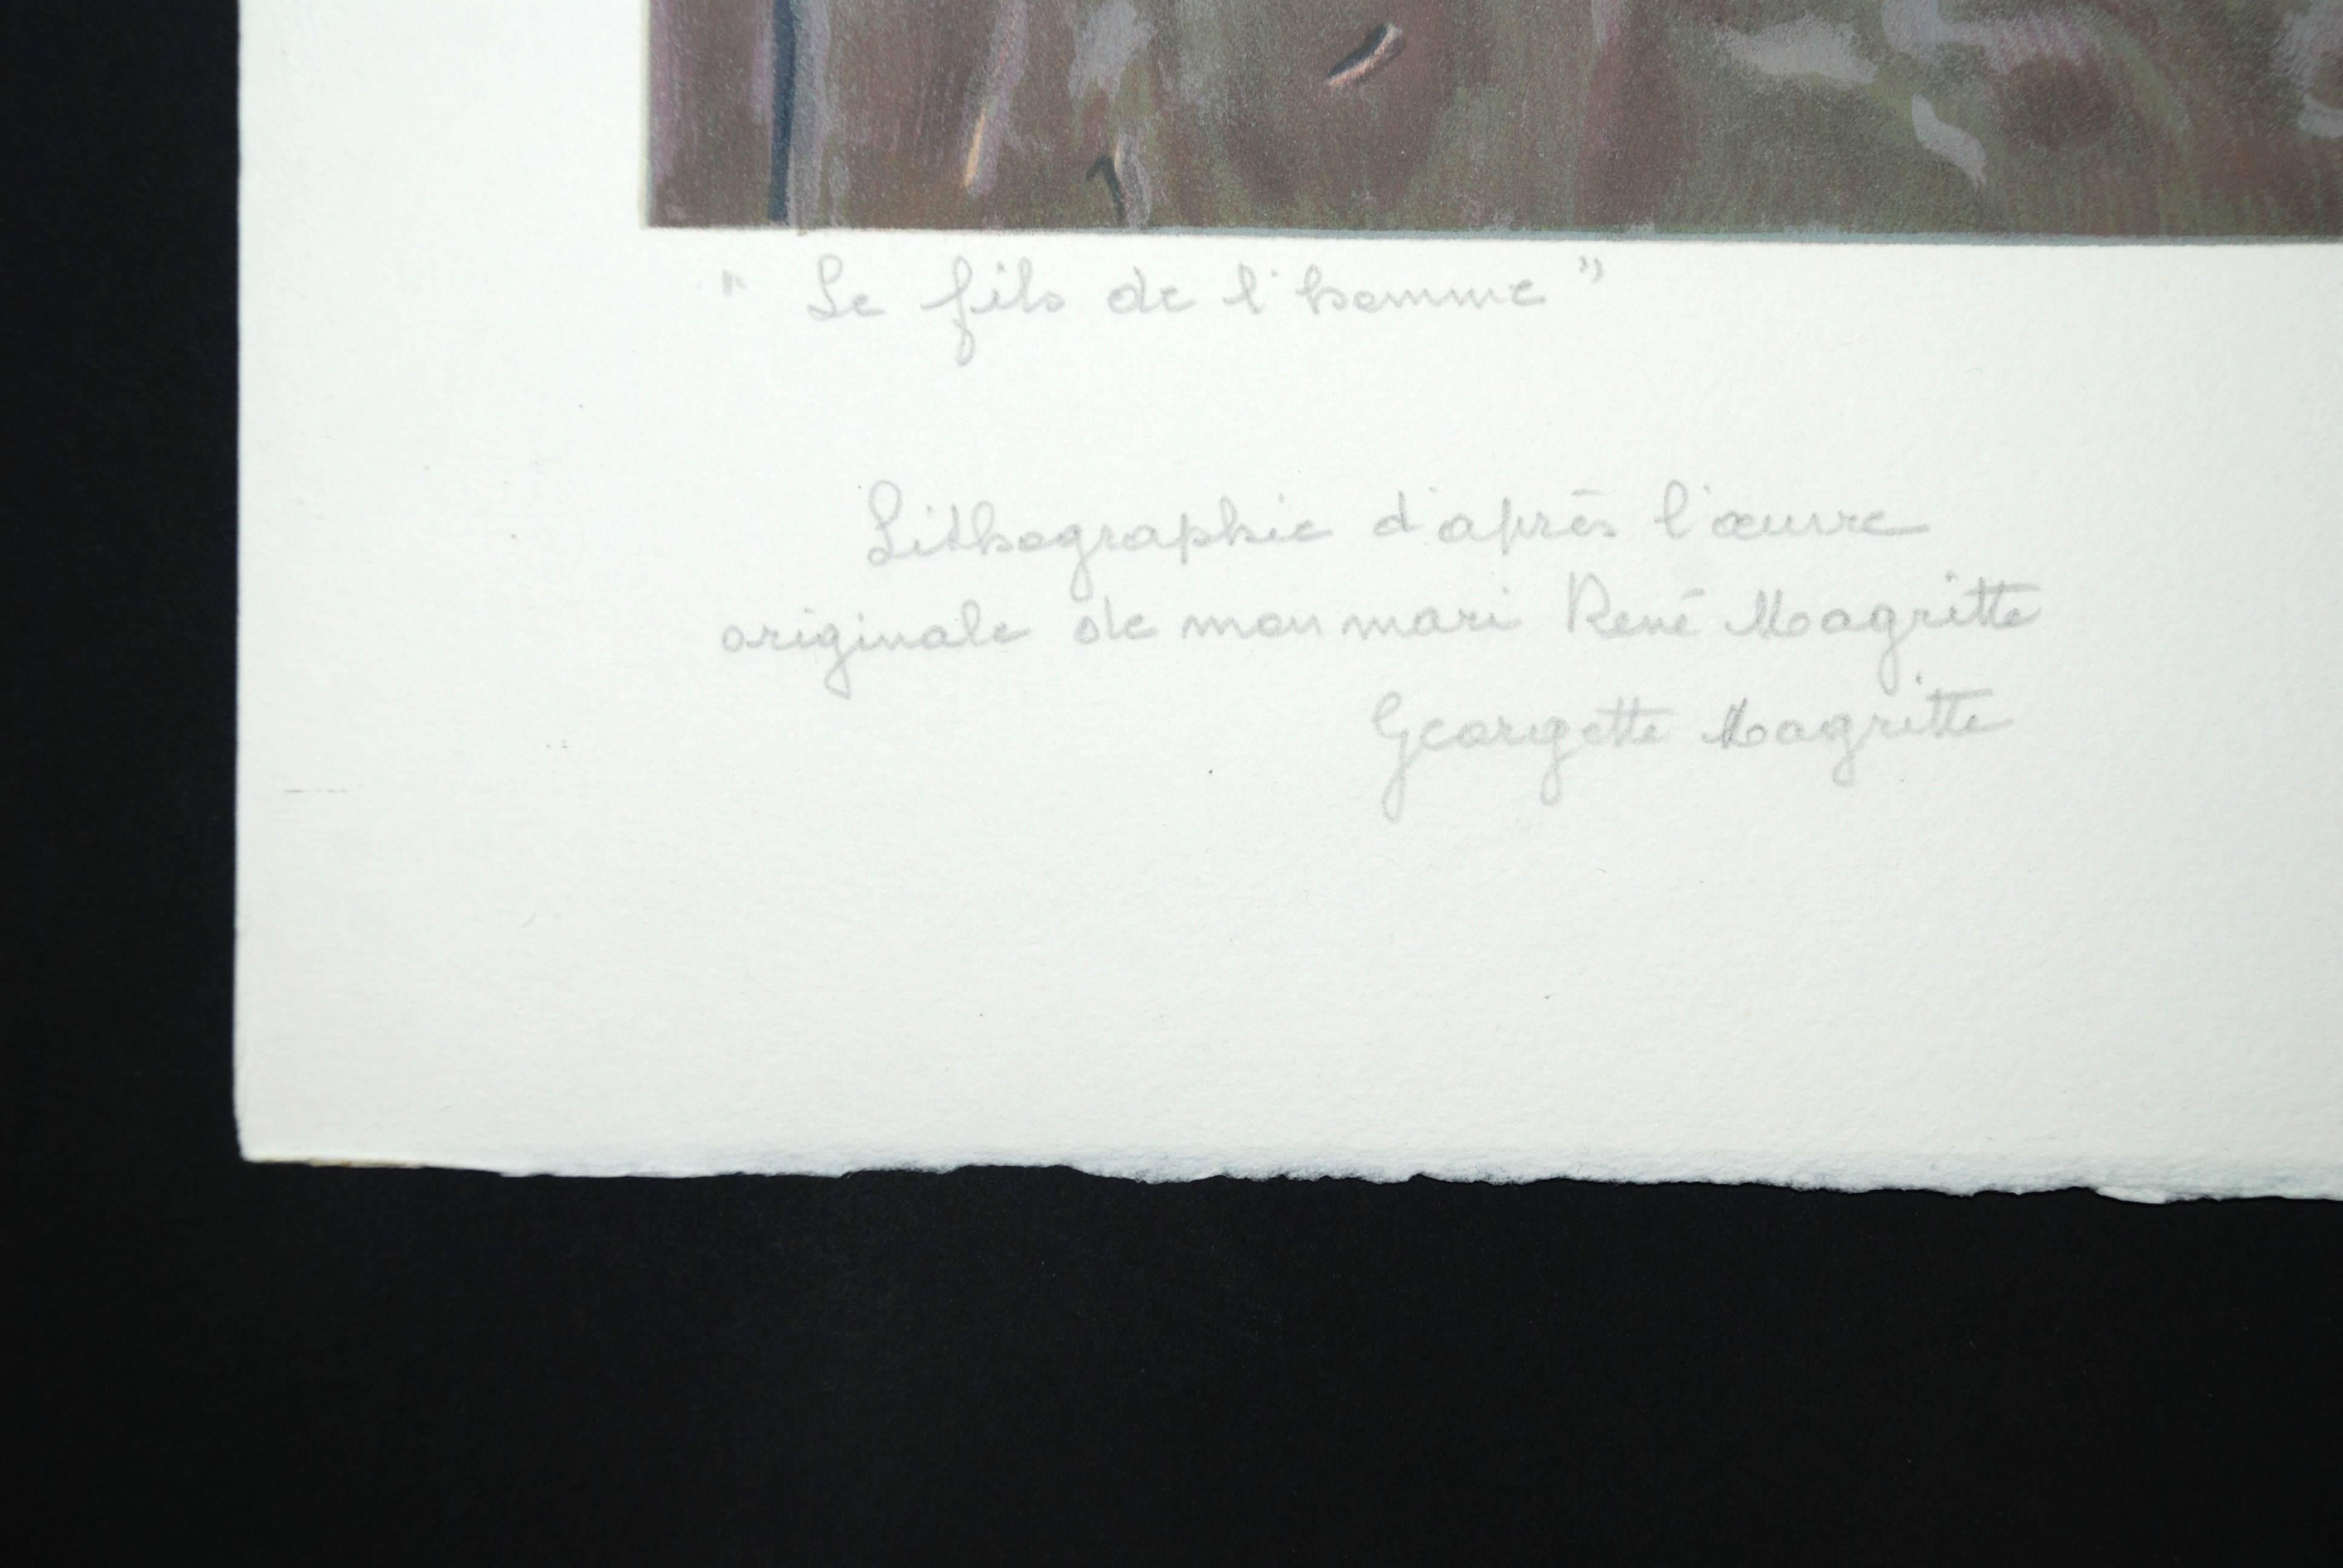 " Le fils de l'homme "
Lithographie d'après l'œuvre
originale de mon mari René Magritte
Georgette Magritte